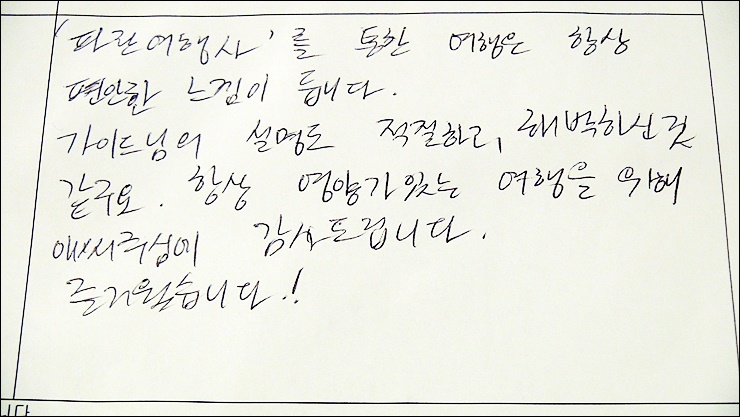 '파란여행사'를 통한 여행은 항상
편안한 느낌이 듭니다.
가이드님의 설명도 적절하고, 해박하신것
같구요. 항상 영양가있는 여행을 위해
애써주심에 감사드립니다.
즐거웠습니다.!
니다